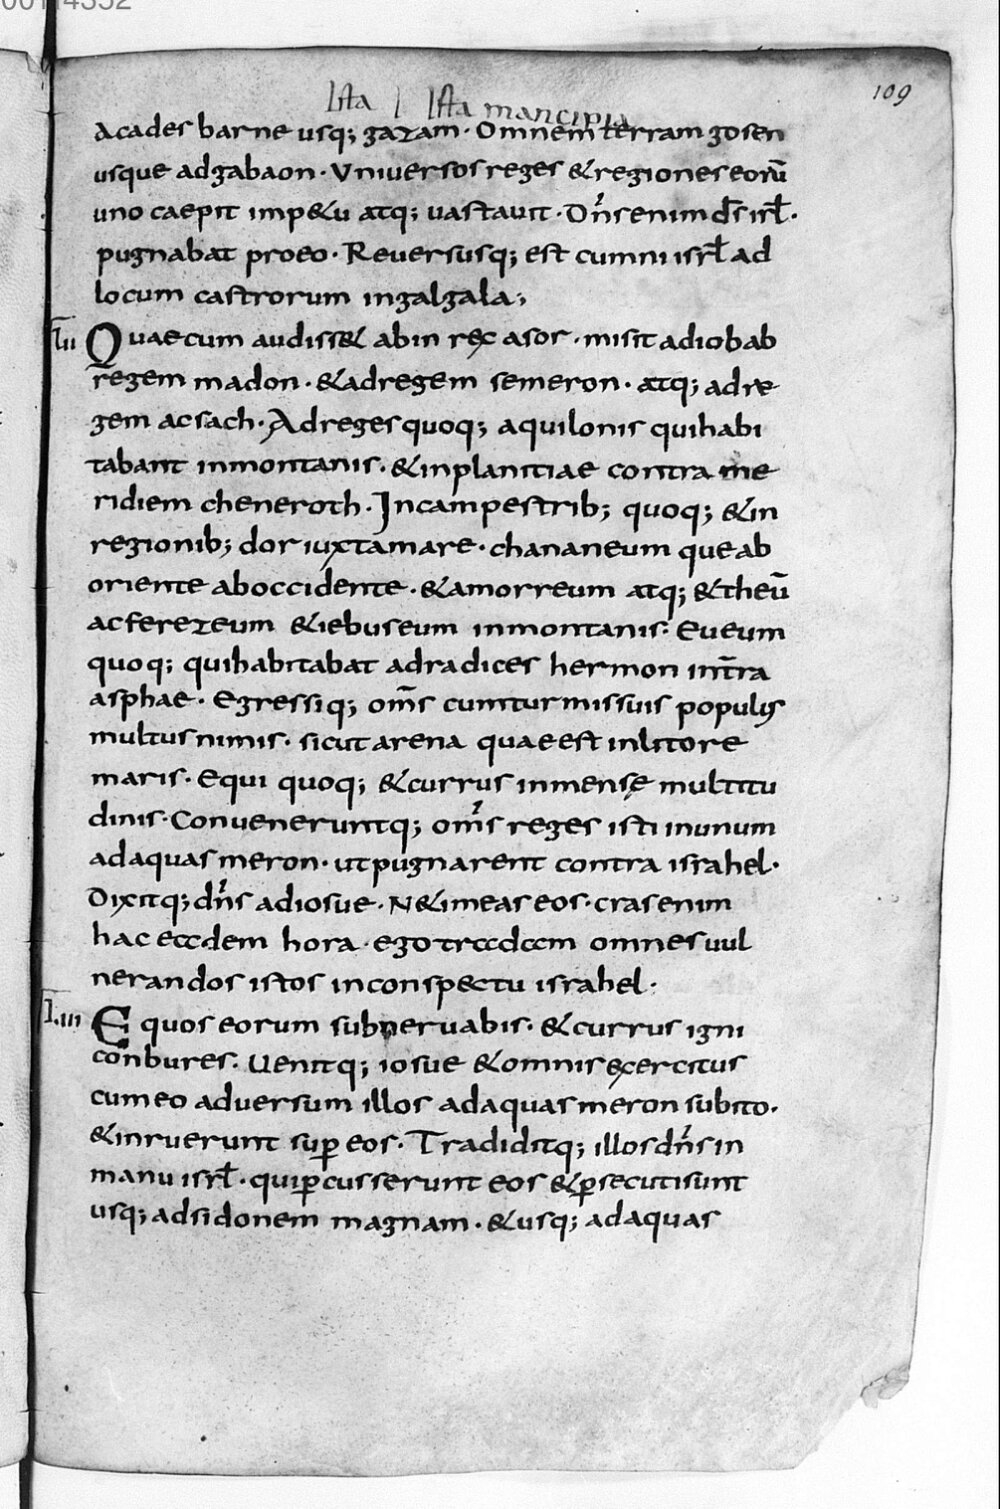 00114352
109
Ista | Ista mancipia
a cades barne usq; gazam. Omnem terram gosen
usque ad gabaon. Universos reges & regiones eorū
uno caepit imp&u atq; vastavit. Dn̄s enim d̄s isrł.
pugnabat pro eo. Reversusq; est cum ni isrł ad
locum castrorum in galgala;
l̄ii Quae cum audiss& abin rex asor. misit ad iobab
regem madon. & ad regem semeron. atq; ad re
gem acsach. Ad reges quoq; aquilonis qui habi
tabant in montanis. & in planitiae contra me
ridiem cheneroth. In campestrib; quoq; & in
regionib; dor iuxta mare. chananeum que ab
oriente ab occidente. & amorreum atq; &theū
ac ferezeum & iebuseum in montanis. Eveum
quoq; qui habitabat ad radices hermon in t̄ra
asphae. Egressiq; om̄s cum turmis suis populus
multus nimis. sicut arena quae est in litore
maris. Equi quoq; & currus inmensę multitu
dinis. Conveneruntq; om̄s reges isti in unum
ad aquas meron. ut pugnarent contra israhel.
Dixitq; dn̄s ad iosue. N& imeas eos. cras enim
hac eadem hora. ego tradam omnes vul
nerandos istos in conspectu israhel.
l̄iii Equos eorum subnervabis. & currus igni
conbures. Venitq; iosue & omnis exercitus
cum eo adversum illos ad aquas meron subito.
& inruerunt sup̱ eos. Tradiditq; illos dn̄s in
manu isrł. qui p̱cusserunt eos & p̱secuti sunt
usq; ad sidonem magnam. & usq; ad aquas